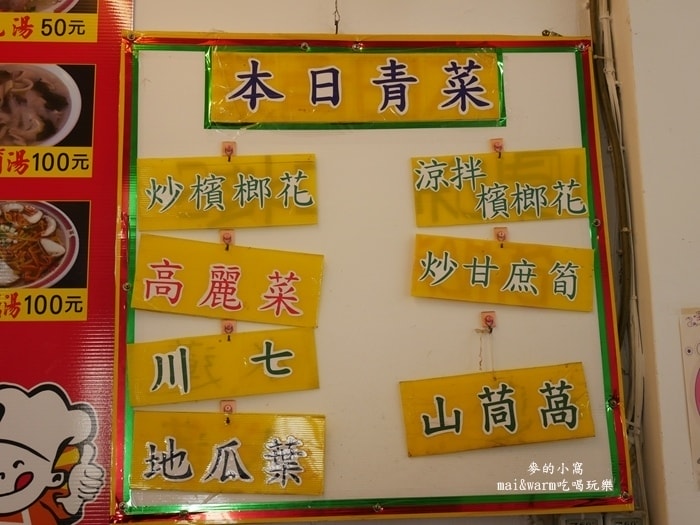 湯50元
湯100元
湯100元
本日青菜
炒檳榔花
高麗菜
川七
地瓜葉
涼拌
檳榔花
炒甘庶筍
山茼萵
麥的小窩
mai&warm吃喝玩樂